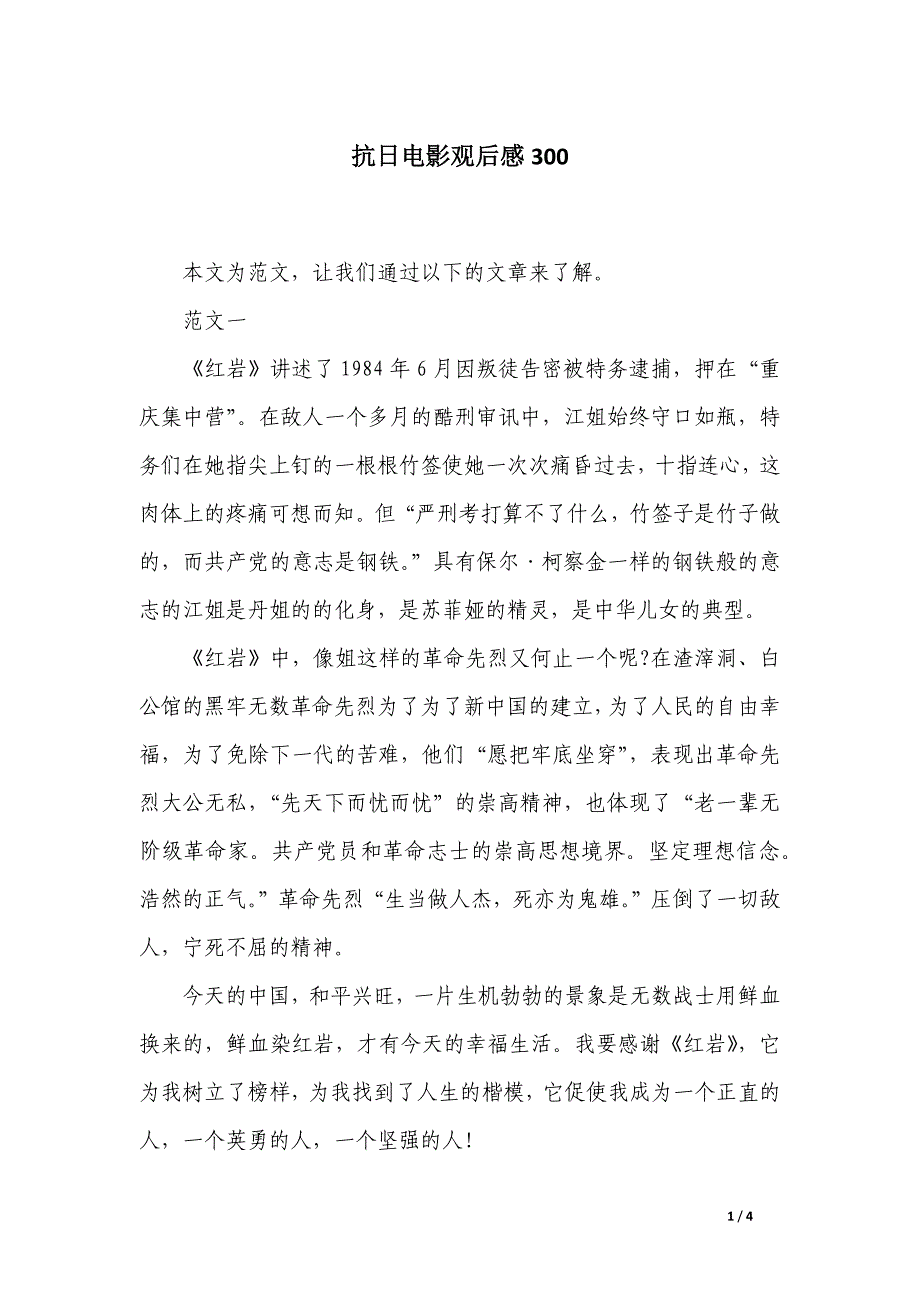 抗日电影观后感 300
本文为范文，让我们通过以下的文章来了解。
范文一
《红岩》讲述了 1984 年 6 月因叛徒告密被特务逮捕，押在“重
庆集中营”。在敌人一个多月的酷刑审讯中，江姐始终守口如瓶，特
务们在她指尖上钉的一根根竹签使她一次次痛昏过去，十指连心，这
肉体上的疼痛可想而知。但“严刑考打算不了什么，竹签子是竹子做
的，而共产党的意志是钢铁。”具有保尔·柯察金一样的钢铁般的意
志的江姐是丹姐的的化身，是苏菲娅的精灵，是中华儿女的典型。
《红岩》中，像姐这样的革命先烈又何止一个呢?在渣滓洞、白
公馆的黑牢无数革命先烈为了为了新中国的建立，为了人民的自由幸
福，为了免除下一代的苦难，他们“愿把牢底坐穿”，表现出革命先
烈大公无私，“先天下而忧而忧”的崇高精神，也体现了“老一辈无
阶级革命家。共产党员和革命志士的崇高思想境界。坚定理想信念。
浩然的正气。”革命先烈“生当做人杰，死亦为鬼雄。”压倒了一切敌
人，宁死不屈的精神。
今天的中国，和平兴旺，一片生机勃勃的景象是无数战士用鲜血
换来的，鲜血染红岩，才有今天的幸福生活。我要感谢《红岩》，它
为我树立了榜样，为我找到了人生的楷模，它促使我成为一个正直的
人，一个英勇的人，一个坚强的人!
1 / 4